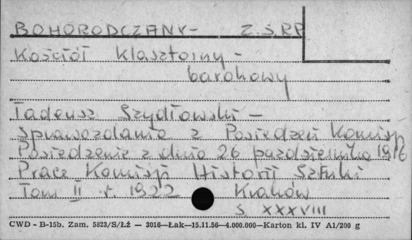 BOHORODCZANY - Z.S.RR
Kościół klasztorny -
barokowy
Tadeusz Szydłowski -
Sprawozdania z Posiedzeń Komisji
Posiedzenie z dnia 26 października 1916
Prace Komisji Historii Sztuki
Tom II r. 1922 Kraków
s XXXVIII
CWD - B-15b. Zam. 5823/S/ŁŻ — 3016—Łak—15.11.56—4.000.000—Karton kl. IV A1/200 g